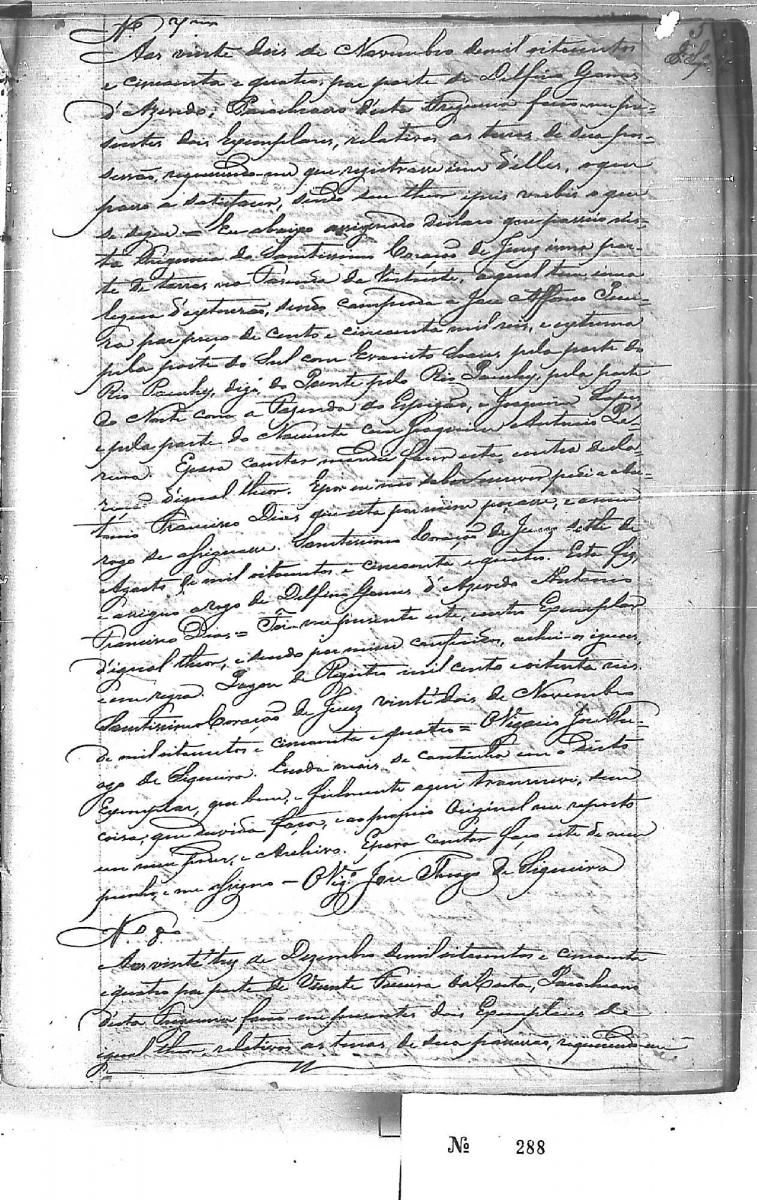 Nº 7
5
Aos vinte dois de Novembro de mil oitocentos
e cincoenta e quatro, por parte de Delfino Gomes
d'Azevedo, Parochiano desta Freguesia forão-me pre-
sentes dois Exemplares, relativos as terras de sua pos-
sessão, requerendo-me que registrasse um d'elles, o que
passo a satisfazer, sendo seu theor ipsis verbis o que
se segue = Eu abaixo assignado declaro que possuo nes-
ta Freguesia do Santissimo Coração de Jesuz uma par-
te de terras na Fazenda da Vertente, a qual tem uma
legua d'extensão, sendo comprada a Jose Affonso Perei-
ra por preço de cento e cincoenta mil reis, e extrema
pela parte do Sul com Evaristo, pela parte do
Rio Pouchy, digo do Poente pelo Rio Pouchy, pela parte
do Norte com a Fazenda do Espigão, e Joaquim Lopes
e pela parte do Nascente com Joaquim e Antonio Pe-
reira. E para constar mandei fazer esta, e outra decla-
ração d'igual theor. E por eu não saber escrever pedi a An-
tonio Francisco Dias, que esta por mim passasse, e a meu
rogo se assignasse. Santissimo Coração de Jesuz sette de
Agosto de mil oitocentos e cincoenta e quatro. Esta fiz,
e assigno a rogo de Delfino Gomes d'Azevedo Antonio
Francisco Dias = Foi-me presente este, e outro Exemplar
d'igual theor, e sendo por mim conferidos, achei-os iguaes,
e em regra. Pagou de Registro mil cento e oitenta reis
Santissimo Coração de Jesuz vinte dois de Novembro
de mil oitocentos e cincoenta e quatro = O Vigario Jose Thi-
ago de Siqueira. E nada mais se continha em o dicto
Exemplar, que bem, e fielmente aqui transcrevi, sem
coisa, que duvida faça, e ao proprio Original me reporto
em meu poder, e Archivo. E para constar faço este de meu
punho, e me assigno = O Vigº Jose Thiago de Siqueira
Nº 8
Aos vinte trez de Dezembro de mil oitocentos e cincoenta
e quatro por parte de Vicente Ferreira da Costa, Parochiano
desta Freguesia forão-me presentes dois Exemplares de
igual theor, relativos as terras de sua possessão, requerendo-me
Nº 288